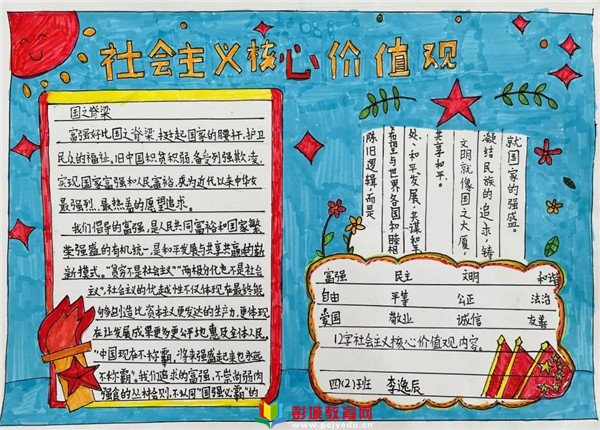 社会主义核心价值观
国之脊梁
富强好比国之脊梁,挺起国家的腰杆,护卫
民众的福祉,旧中国积贫积弱,备受列强欺凌,
实现国家富强和人民富裕,成为近代以来中华女
最强烈、最热善的愿望追求。
我们倡导的富强,是人民共同富裕和国家繁
荣强盛的有机统一,是和平发展与共享共赢的
新模式。"贫穷不是社会主义""两极分化也不是社会
主义"。社会主义的优越性不仅体现在最终能
够创造比资本主义更发达的生产力,更体现
在让发展成果更多更公平地惠及全体人民。
"中国现在不称霸,将来强盛起来也永远
不称霸"。我们追求的富强,不崇尚弱肉
强食的丛林法则,不认同"国强必霸"的
陈旧逻辑,而是
希望与世界各国和睦相
处、和平发展、共谋和平
共享和平。
文明就像国之大厦,
凝结民族的追求,铸
就国家的强盛。
富强 民主 文明 和谐
自由 平等 公正 法治
爱国 敬业 诚信 友善
12字社会主义核心价值观内容。
四(2)班 李逸辰
彭城教育网
www.pcjyedu.cn